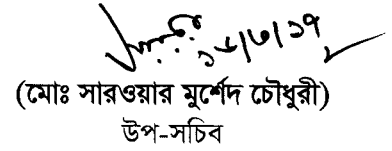 ১৬/৩/১৭
(মোঃ সারওয়ার মুর্শেদ চৌধুরী)
উপ-সচিব